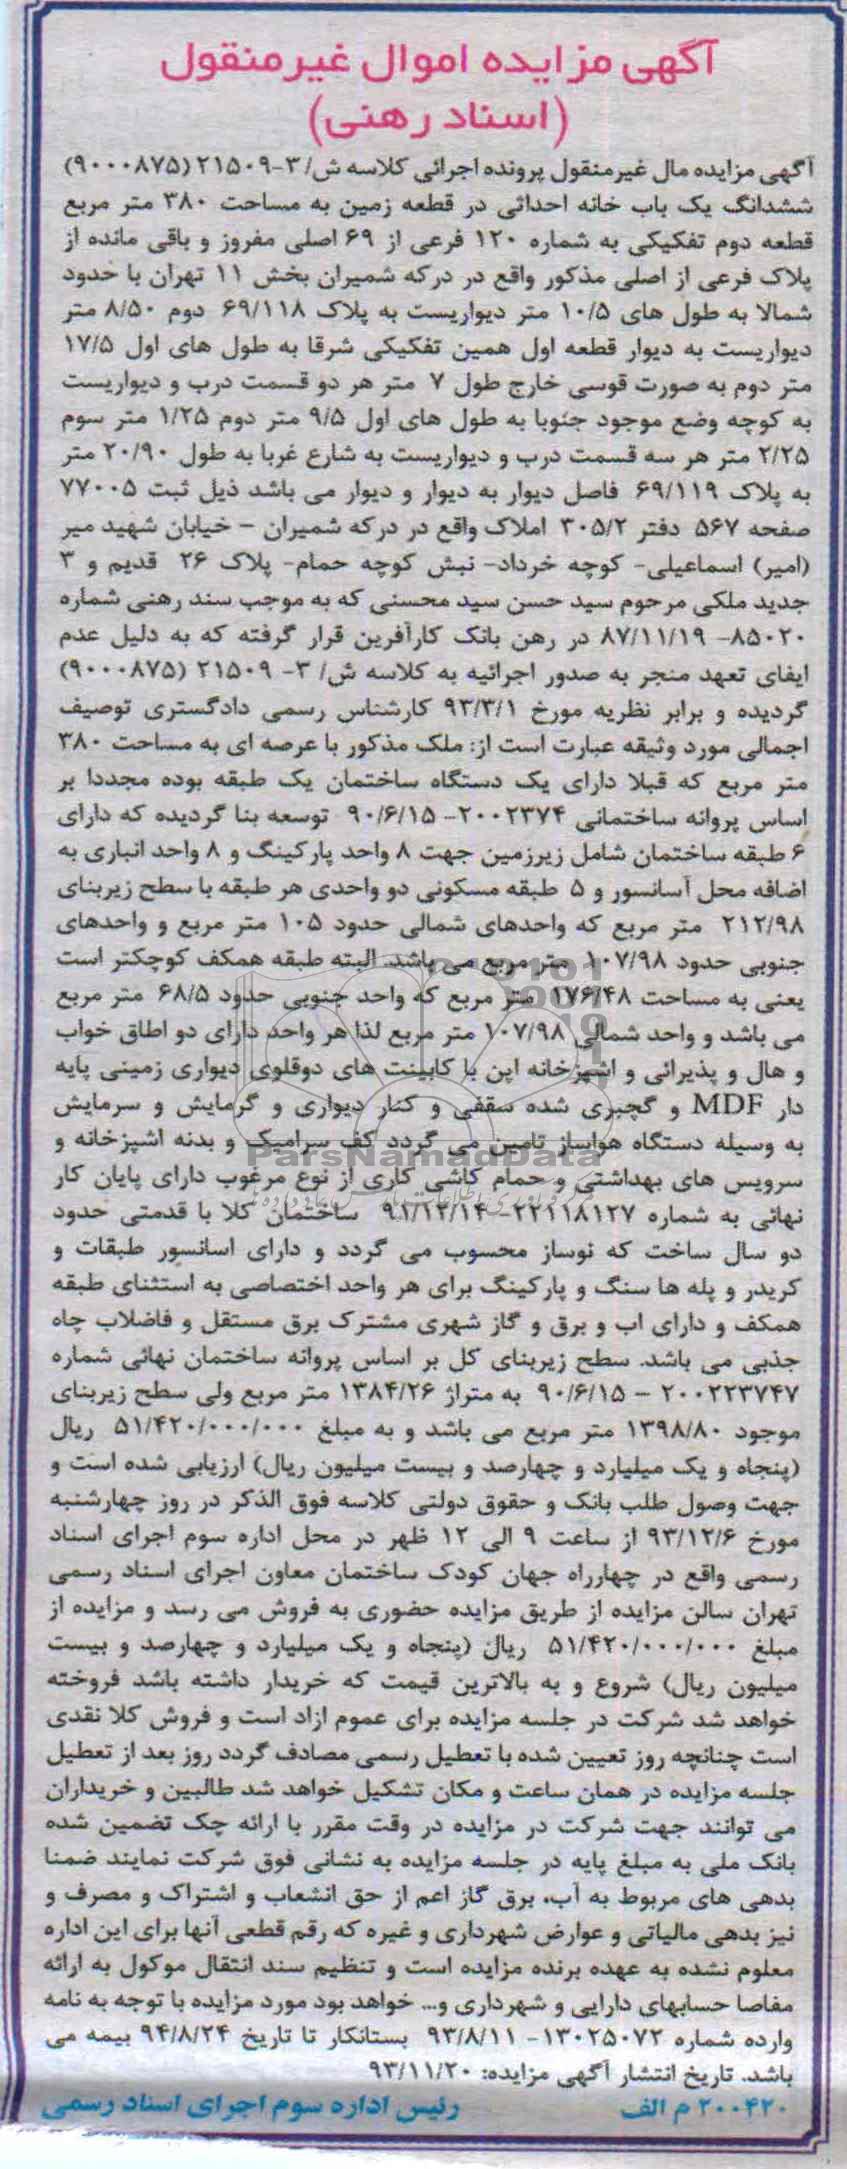 آگهی مزایده اموال غیرمنقول
(اسناد رهنی)
آگهی مزایده مال غیرمنقول پرونده اجرائی کلاسه ش/۳-۲۱۵۰۹ (۹۰۰۰۸۷۵)
ششدانگ یک باب خانه احداثی در قطعه زمین به مساحت ۳۸۰ متر مربع
قطعه دوم تفکیکی به شماره ۱۲۰ فرعی از ۶۹ اصلی مفروز و باقی مانده از
پلاک فرعی از اصلی مذکور واقع در درکه شمیران بخش ۱۱ تهران با حدود
شمالا به طول های ۱۰/۵ متر دیواریست به پلاک ۶۹/۱۱۸ دوم ۸/۵۰ متر
دیواریست به دیوار قطعه اول همین تفکیکی شرقا به طول های اول ۱۷/۵
متر دوم به صورت قوسی خارج طول ۷ متر هر دو قسمت درب و دیواریست
به کوچه وضع موجود جنوبا به طول های اول ۹/۵ متر دوم ۱/۲۵ متر سوم
۲/۲۵ متر هر سه قسمت درب و دیواریست به شارع غربا به طول ۲۰/۹۰ متر
به پلاک ۶۹/۱۱۹ فاصل دیوار به دیوار و دیوار می باشد ذیل ثبت ۷۷۰۰۵
صفحه ۵۶۷ دفتر ۳۰۵/۲ املاک واقع در درکه شمیران – خیابان شهید میر
(امیر) اسماعیلی- کوچه خرداد- نبش کوچه حمام- پلاک ۲۶ قدیم و ۳
جدید ملکی مرحوم سید حسن سید محسنی که به موجب سند رهنی شماره
۸۵۰۲۰- ۸۷/۱۱/۱۹ در رهن بانک کارآفرین قرار گرفته که به دلیل عدم
ایفای تعهد منجر به صدور اجرائیه به کلاسه ش/ ۳- ۲۱۵۰۹ (۹۰۰۰۸۷۵)
گردیده و برابر نظریه مورخ ۹۳/۳/۱ کارشناس رسمی دادگستری توصیف
اجمالی مورد وثیقه عبارت است از: ملک مذکور با عرصه ای به مساحت ۳۸۰
متر مربع که قبلا دارای یک دستگاه ساختمان یک طبقه بوده مجددا بر
اساس پروانه ساختمانی ۲۰۰۲۳۷۴- ۹۰/۶/۱۵ توسعه بنا گردیده که دارای
۶ طبقه ساختمان شامل زیرزمین جهت ۸ واحد پارکینگ و ۸ واحد انباری به
اضافه محل آسانسور و ۵ طبقه مسکونی دو واحدی هر طبقه با سطح زیربنای
۲۱۲/۹۸ متر مربع که واحدهای شمالی حدود ۱۰۵ متر مربع و واحدهای
جنوبی حدود ۱۰۷/۹۸ متر مربع می باشد. البته طبقه همکف کوچکتر است
یعنی به مساحت ۱۷۶/۴۸ متر مربع که واحد جنوبی حدود ۶۸/۵ متر مربع
می باشد و واحد شمالی ۱۰۷/۹۸ متر مربع لذا هر واحد دارای دو اطاق خواب
و هال و پذیرائی و اشپزخانه اپن با کابینت های دوقلوی دیواری زمینی پایه
دار MDF و گچبری شده سقفی و کنار دیواری و گرمایش و سرمایش
به وسیله دستگاه هواساز تامین می گردد کف سرامیک و بدنه اشپزخانه و
ParsNamadData
سرویس های بهداشتی و حمام کاشی کاری از نوع مرغوب دارای پایان کار
نهائی به شماره ۲۲۱۱۸۱۲۷- ۹۱/۱۲/۱۴ ساختمان کلا با قدمتی حدود
دو سال ساخت که نوساز محسوب می گردد و دارای اسانسور طبقات و
کریدر و پله ها سنگ و پارکینگ برای هر واحد اختصاصی به استثنای طبقه
همکف و دارای اب و برق و گاز شهری مشترک برق مستقل و فاضلاب چاه
جذبی می باشد. سطح زیربنای کل بر اساس پروانه ساختمان نهائی شماره
۲۰۰۲۲۳۷۴۷ – ۹۰/۶/۱۵ به متراژ ۱۳۸۴/۲۶ متر مربع ولی سطح زیربنای
موجود ۱۳۹۸/۸۰ متر مربع می باشد و به مبلغ ۵۱/۴۲۰/۰۰۰/۰۰۰ ریال
(پنجاه و یک میلیارد و چهارصد و بیست میلیون ریال) ارزیابی شده است و
جهت وصول طلب بانک و حقوق دولتی کلاسه فوق الذکر در روز چهارشنبه
مورخ ۹۳/۱۲/۶ از ساعت ۹ الی ۱۲ ظهر در محل اداره سوم اجرای اسناد
رسمی واقع در چهارراه جهان کودک ساختمان معاون اجرای اسناد رسمی
تهران سالن مزایده از طریق مزایده حضوری به فروش می رسد و مزایده از
مبلغ ۵۱/۴۲۰/۰۰۰/۰۰۰ ریال (پنجاه و یک میلیارد و چهارصد و بیست
میلیون ریال) شروع و به بالاترین قیمت که خریدار داشته باشد فروخته
خواهد شد شرکت در جلسه مزایده برای عموم ازاد است و فروش کلا نقدی
است چنانچه روز تعیین شده با تعطیل رسمی مصادف گردد روز بعد از تعطیل
جلسه مزایده در همان ساعت و مکان تشکیل خواهد شد طالبین و خریداران
می توانند جهت شرکت در مزایده در وقت مقرر با ارائه چک تضمین شده
بانک ملی به مبلغ پایه در جلسه مزایده به نشانی فوق شرکت نمایند ضمنا
بدهی های مربوط به آب، برق گاز اعم از حق انشعاب و اشتراک و مصرف و
نیز بدهی مالیاتی و عوارض شهرداری و غیره که رقم قطعی آنها برای این اداره
معلوم نشده به عهده برنده مزایده است و تنظیم سند انتقال موکول به ارائه
مفاصا حسابهای دارایی و شهرداری و... خواهد بود مورد مزایده با توجه به نامه
وارده شماره ۱۳۰۲۵۰۷۲- ۹۳/۸/۱۱ بستانکار تا تاریخ ۹۴/۸/۲۴ بیمه می
باشد. تاریخ انتشار آگهی مزایده: ۹۳/۱۱/۲۰
۲۰۰۴۲۰ م الف رئیس اداره سوم اجرای اسناد رسمی